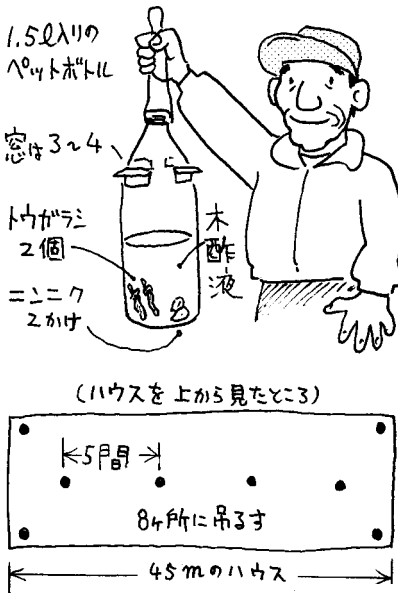 1.5ℓ入りの
ペットボトル
窓は3~4
トウガラシ
2個
木酢液
ニンニク
2かけ
(ハウスを上から見たところ)
5間
8ヶ所に吊るす
45mのハウス